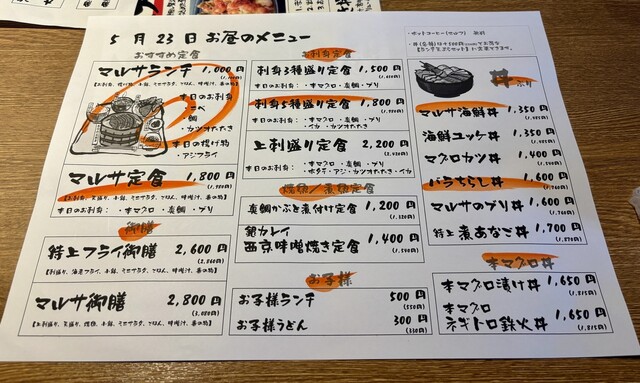 5月23日お昼のメニュー
おすすめ定食
マルサランチ 1,000円
本日のお刺身
・鯛
・カツオたたき
本日の揚げ物
・アジフライ
マルサ定食 1,800円
本日のお刺身：・本マグロ・真鯛・ブリ
御膳
特上フライ御膳 2,600円
マルサ御膳 2,800円
(3,080円)
お刺身定食
刺身3種盛り定食 1,500円
本日のお刺身：・本マグロ・真鯛・ブリ
刺身5種盛り定食 1,800円
本日のお刺身：・本マグロ・真鯛・ブリ
・イカ・カツオたたき
上刺盛り定食 2,200円
本日のお刺身：・本マグロ・真鯛・ブリ
・ホタテ・アジ・カツオたたき・イカ
焼魚/煮魚定食
真鯛かぶと煮付け定食 1,200円
銀カレイ
西京味噌焼き定食 1,400円
お子様
お子様ランチ 500円
(550円)
お子様うどん 300円
(330円)
・ホットコーヒー(セルフ) 無料
丼
マルサ海鮮丼 1,350円
海鮮ユッケ丼 1,350円
マグロカツ丼 1,400円
バラちらし丼 1,600円
マルサのブリ丼 1,600円
特上煮あなご丼 1,700円
本マグロ丼
本マグロ漬け丼 1,650円
(1,815円)
本マグロ
ネギトロ鉄火丼 1,650円
(1,815円)